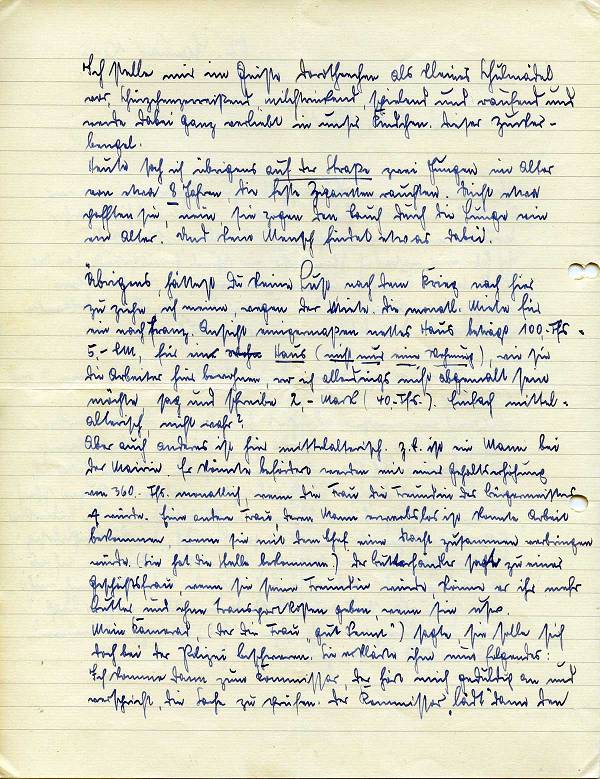 Ich stelle mir im Geiste Dorothechen als kleines Schulmädel
vor, Schürzchenzerreißend, milchtrinkend, spielend und raufend und
werde dabei ganz verliebt in unser Kindchen. Dieser Zucker-
bengel.
Heute sah ich übrigens auf der Straße zwei Jungen im Alter
von etwa 8 Jahren, die feste Zigaretten rauchten. Nicht etwa
pafften sie, nein, sie zogen den Rauch durch die Lunge wie
ein Alter. Und kein Mensch findet etwas dabei.
Übrigens, hättest Du keine Lust, nach dem Krieg nach hier
zu ziehen, ich meine, wegen der Miete. Die monatl. Miete für
ein nach franz. Ansicht einigermaßen nettes Haus beträgt 100.- Ffs =
5.- RM, für ein Haus (nicht nur eine Wohnung), wie sie
die Arbeiter hier bewohnen, wo ich allerdings nicht abgemalt sein
möchte sag und schreibe 2,- Mark (40.- Ffs.). Einfach mittel-
alterisch, nicht wahr?
Aber auch anderes ist hier mittelalterisch. z.B. ist ein Mann bei
der Mairie. Er könnte befördert werden mit einer Gehaltserhöhung
von 360.- Ffs. monatlich, wenn die Frau die Freundin des Bürgermeisters
würde. Eine andere Frau, deren Mann erwerbslos ist konnte Arbeit
bekommen, wenn sie mit dem Chef eine Nacht zusammen verbringen
würde. (Sie hat die Stelle bekommen.) Der Butterhändler sagte zu einer
Geschäftsfrau, wenn sie seine Freundin würde, könne er ihr mehr
Butter und ohne Transportkosten geben, wenn sie usw.
Mein Kamerad, (der die Frau „gut kennt") sagte, sie solle sich
doch bei der Polizei beschweren. Sie erklärte ihm nun folgendes:
Ich komme dann zum Kommissar, der hört mich geduldig an und
verspricht, die Sache zu prüfen. Der Kommissar „lädt" dann den